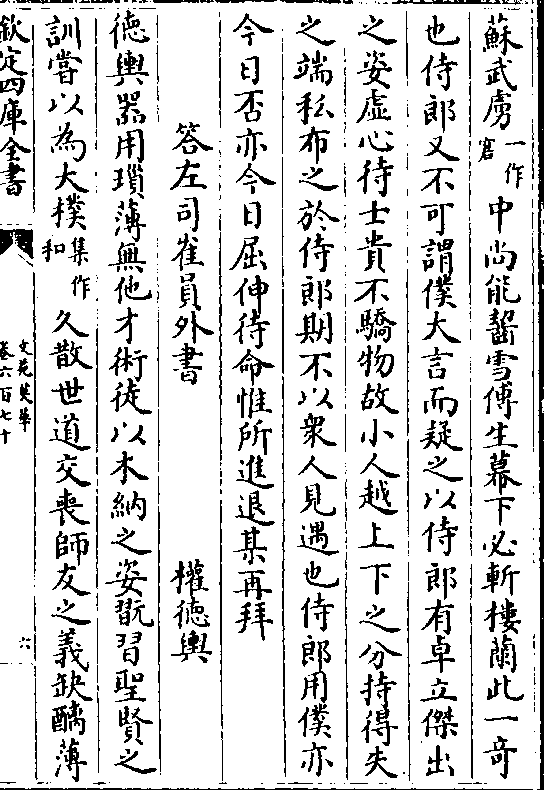 蘇武虜一作窖中尚能齧雪傅生幕下必斬樓蘭此一竒
也侍郎又不可謂僕大言而疑之以侍郎有卓立傑出
之姿虚心待士貴不驕物故小人越上下之分持得失
之端私布之於侍郎期不以衆人見遇也侍郎用僕亦
今日否亦今日屈伸待命惟所進退某再拜
答左司崔員外書 權徳輿
徳輿器用瑣薄無他才術徒以木納之姿翫習聖賢之
訓嘗以為大樸集作和久散世道交喪師友之義缺醨薄
欽定四庫全書
文苑英華
卷六百七十
六